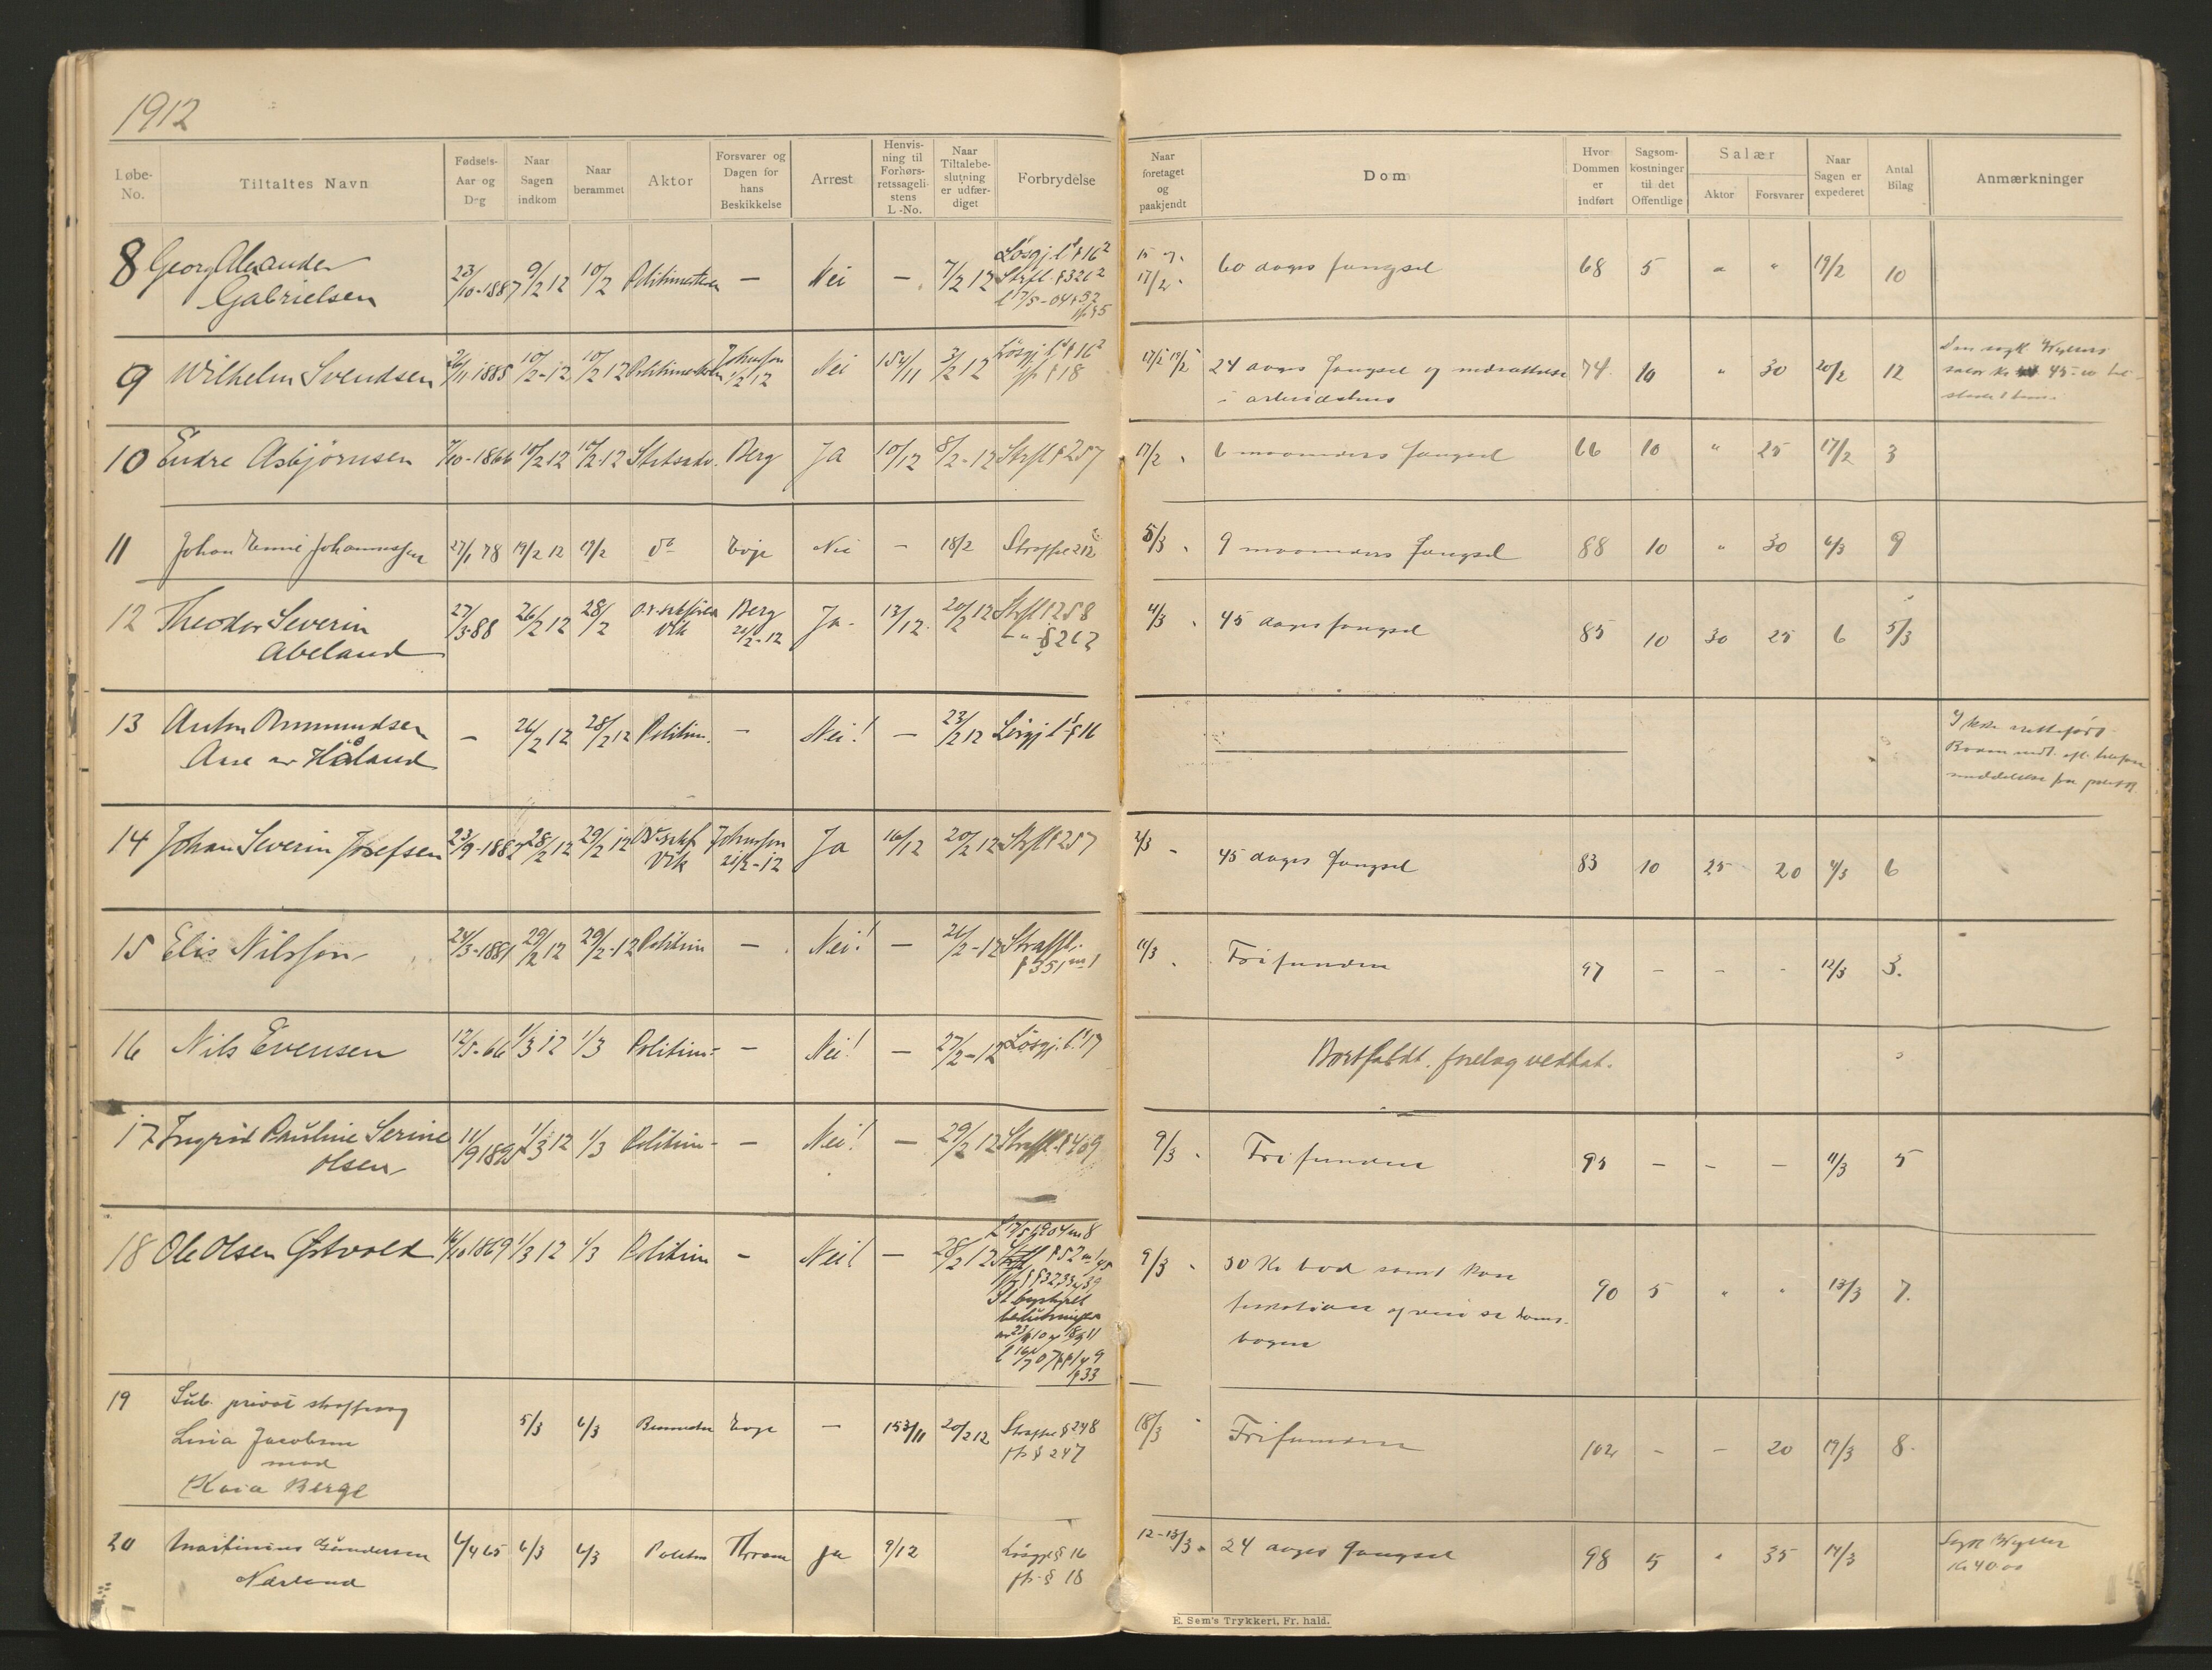 1912
Løbe-No. Tiltaltes Navn Fødsels-Aar og Dag Naar Sagen indkom Naar berammet Aktor Forsvarer og Dagen for hans Beskikkelse Arrest Henvisning til Forhørsretssagelistens L.-No. Naar Tiltalebeslutning er udfærdiget Forbrydelse Naar foretaget og paakjendt Dom Hvor Dommen er indført Sagsomkostninger til det Offentlige Salær Aktor Forsvarer Naar Sagen er expederet Antal Bilag Anmærkninger
8 Georg Alexander 23/10-1887 9/2 12 10/2 Politimesteren — Nei — 7/2 12 Løsgj.l. § 16²
Gabrielsen Strfl. § 326²
17/2 60 dages fængsel 68 5 " " 19/2 10
9 Wilhelm Svendsen 10/2-12 10/2 12 Politimesteren Johnsson 1/2 12 Nei 154/11 3/2 12 Løsgj.l. § 16²
jfr § 18
17/2 19/2 24 dages fængsel og indsættelse 74 10 " 30 20/2 12
i arbeidshus
10 Endre Asbjørnsen 10/2 12 10/2 12 Statsadv. Berg Ja 10/12 8/2-12 Strfl § 257
17/2 6 maaneders fængsel 66 10 " 25 17/2 3
11 Johan Johannessen 27/1 78 19/2 12 19/2 do Nei — 18/2 Straffel 212
5/3 9 maaneders fængsel 88 10 " 30 6/3 9
12 Theodor Severin 27/3-88 26/2 12 28/2 O.r.sakfører Berg Ja- 13/12 20/2 12 Strfl § 258
Abeland Vik 21/2-12 § 262
4/3 45 dages fængsel 85 10 30 25 6 5/3
13 Anton Ommundsen — 26/2 12 28/2 12 Politim. — Nei! — 23/2 12 Løsgj.l. § 16
Aase av Håland
Ikke rettsført.
14 Johan Severin Josefsen 23/9-1882 28/2 12 29/2 12 O.r.sakf Johnsson Ja 16/12 20/2 12 Strfl § 257
Vik 21/2-12
2/3 45 dages fængsel 83 10 25 20 4/3 6
15 Elis Nilsson 24/3-1881 29/2 12 29/2-12 Politim — Nei! — 26/2-12 Straffl.
§ 351
11/3 Frifunden 97 — - - 12/3 3.
16 Nils Evensen 12/5-66 1/3 12 1/3 Politim- — Nei! — 27/2-12 Løsgj.l. 17
Bortfaldt. forelæg vedtat.
17 Ingrid Pauline Serine 11/9 1895 1/3 12 1/3 Politim- — Nei! — 29/2 12 Straffl. § 409
Olsen
9/3 Frifunden 95 — — — 11/3 5
18 Ole Olsen Østvold 1869 1/3 12 1/3 Politim — Nei! — 28/2 12
9/3 30 Kr bod samt
90 5 " " 13/3 7.
bogen
19 Sub. privat straffesag
Jacobsen 5/3 6/3 — 153/11 20/2 12 Straffel § 248
mod jfr § 247
Kaia Berge
18/3 Frifunden 102 — — 20 19/3 8.
20 Martinius Gundersen 6/4 65 6/3 6/3 Politim Thrane Ja 9/12 Løsgjl § 16
Nærland jfr § 18
12-13/3 24 dages fængsel 98 5 " 35 14/3
Kr 40.00
E. Sem's Trykkeri, Fr. hald.